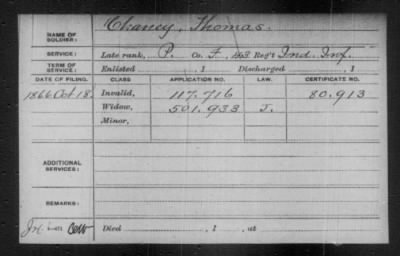 NAME OF SOLDIER: Chaney, Thomas.
SERVICE: Late rank, P. Co. F, 63 Reg't Ind. Inf.
TERM OF SERVICE: Enlisted , 1 Discharged , 1
DATE OF FILING. CLASS APPLICATION NO. LAW. CERTIFICATE NO.
1866 Oct 18. Invalid, 117.716 80.913
Widow, 501.933 J.
Minor,
ADDITIONAL SERVICES:
REMARKS:
Died , 1 , at